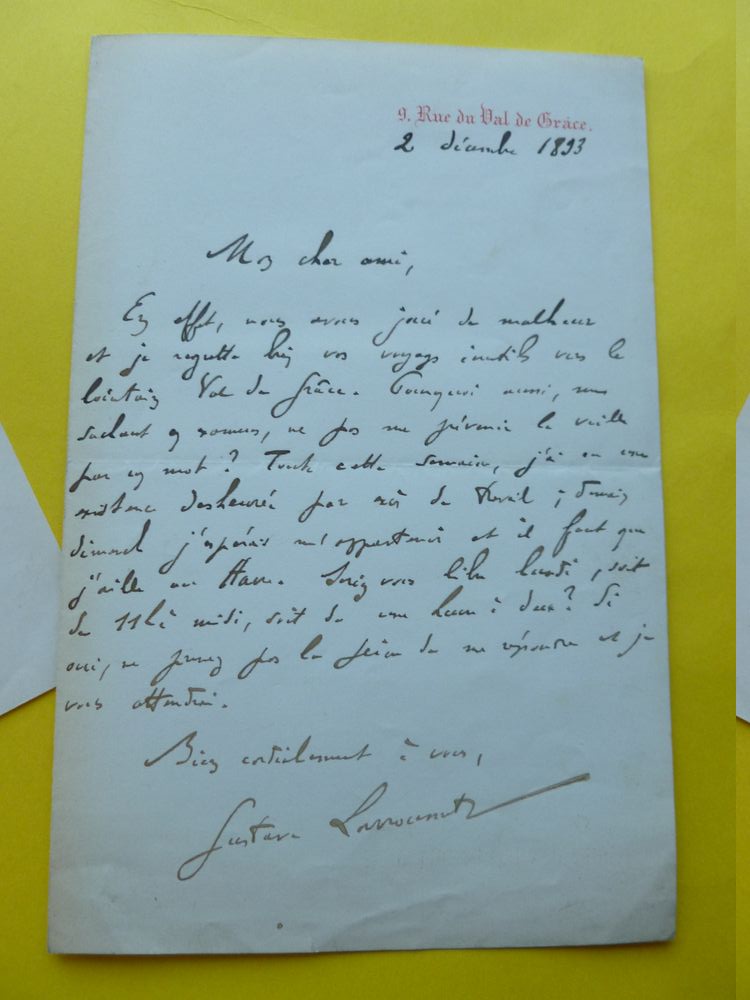 9. Rue du Val de Grâce.
2 décembre 1893
Mon cher ami,
En effet, nous avons joué de malheur
et je regrette bien vos voyages inutiles vers le
lointain Val de Grâce. Pourquoi aussi, me
sachant en, ne pas me prévenir la veille
par un mot ? Toute cette semaine, j'ai eu une
existence desheurée par excès de travail ; demain
dimanche j'espérais m'appartenir et il faut que
j'aille au Havre. Seriez vous libre lundi, soit
de 11h à midi, soit de une heure à deux ? Si
oui, ne prenez pas la peine de me répondre et je
vous attendrai.
Bien cordialement à vous,
Gustave Larroumet